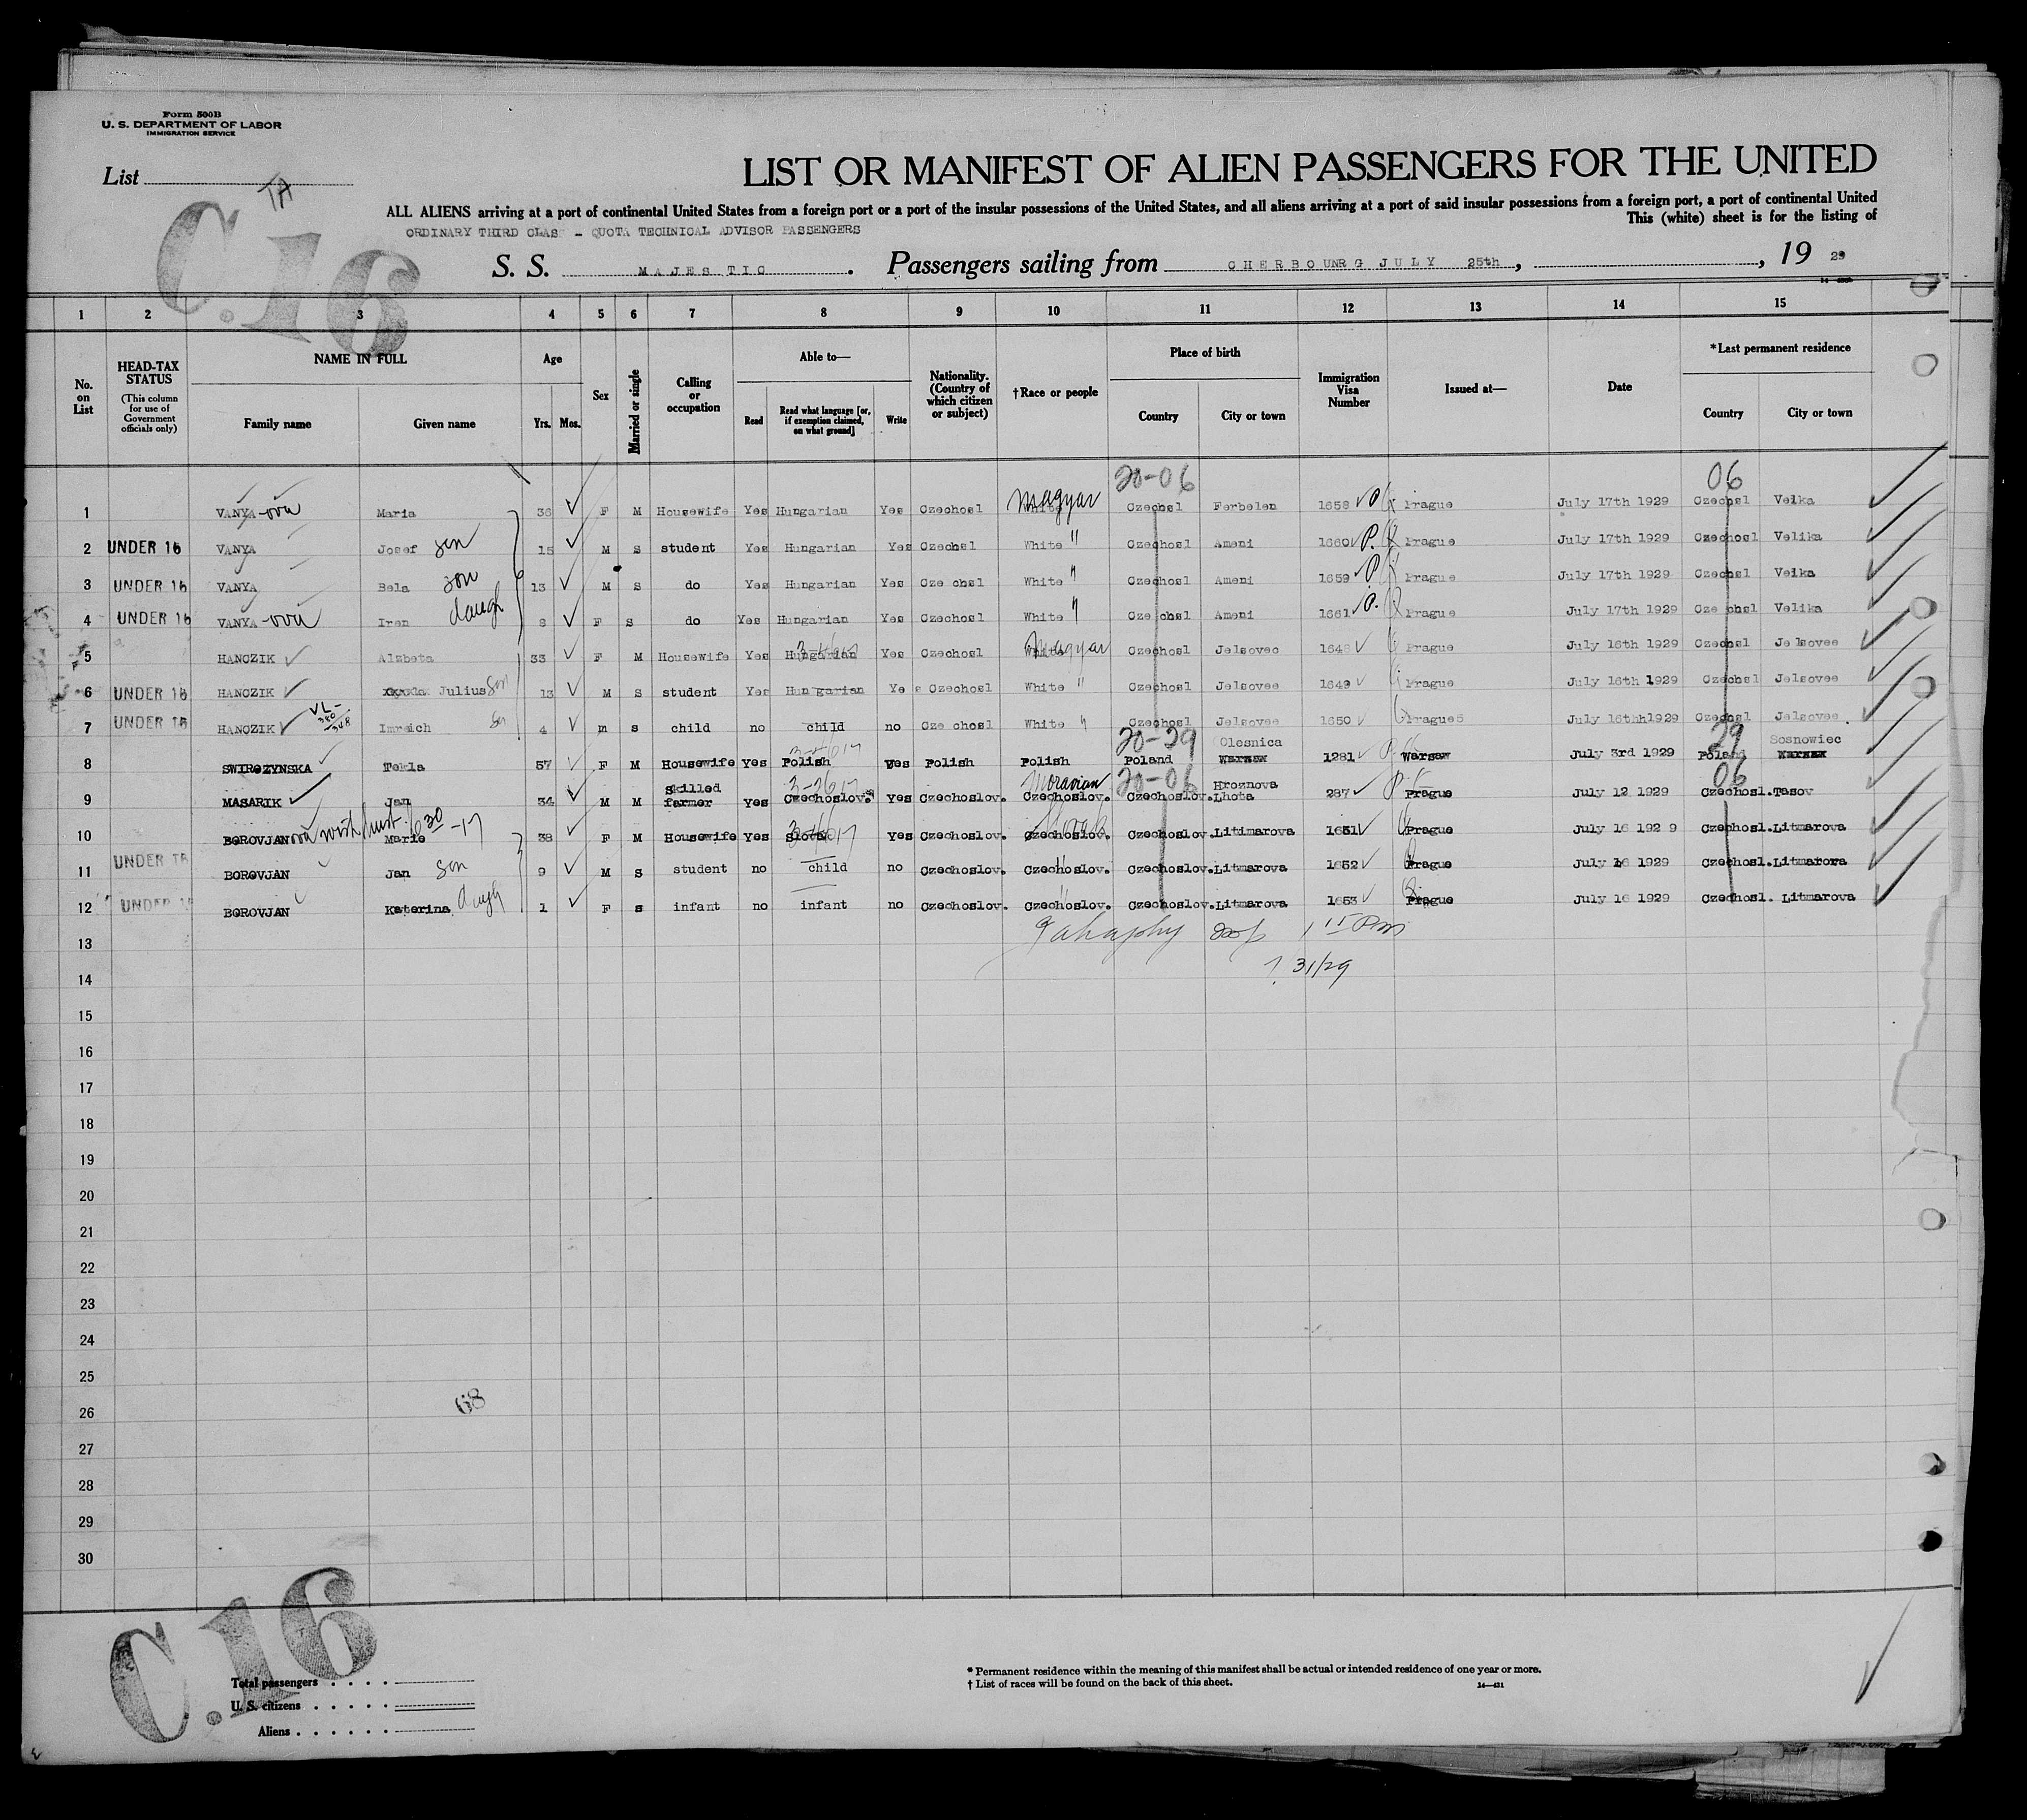 Form 500B
U. S. DEPARTMENT OF LABOR
IMMIGRATION SERVICE
List
TA
C.16
LIST OR MANIFEST OF ALIEN PASSENGERS FOR THE UNITED
ALL ALIENS arriving at a port of continental United States from a foreign port or a port of the insular possessions of the United States, and all aliens arriving at a port of said insular possessions from a foreign port, a port of continental United
This (white) sheet is for the listing of
ORDINARY THIRD CLAS - QUOTA TECHNICAL ADVISOR PASSENGERS
S. S. MAJESTIC. Passengers sailing from CHERBOUNRG JULY 25th, , 19 29
1 2 3 4 5 6 7 8 9 10 11 12 13 14 15
No. on List HEAD-TAX STATUS (This column for use of Government officials only) NAME IN FULL Age Sex Married or single Calling or occupation Able to— Nationality. (Country of which citizen or subject) †Race or people Place of birth Immigration Visa Number Issued at— Date *Last permanent residence
Family name Given name Yrs. Mos. Read Read what language [or, if exemption claimed, on what ground] Write Country City or town Country City or town
20-06 06
1 VANYA-ova Maria 36 F M Housewife Yes Hungarian Yes Czechosl White Magyar Czechosl Ferbelen 1658 P Prague July 17th 1929 Czechsl Velka
2 UNDER 16 VANYA Josef son 15 M S student Yes Hungarian Yes Czechsl White " Czechosl Ameni 1660 P. Prague July 17th 1929 Czechosl Velika
3 UNDER 16 VANYA Bela son 13 M S do Yes Hungarian Yes Cze chsl White " Czechosl Ameni 1659 P Prague July 17th 1929 Czechsl Velka
4 UNDER 16 VANYA-ova Iren daugh 8 F S do Yes Hungarian Yes Czechosl White " Cze chsl Ameni 1661 P. Prague July 17th 1929 Cze chsl Velika
5 HANCZIK Alzbeta 33 F M Housewife Yes Hungarian Yes Czechosl White Magyar Czechosl Jelsovec 1648 Prague July 16th 1929 Czechsl Jelsovee
6 UNDER 16 HANCZIK Julius Son 13 M S student Yes Hun garian Ye s Czechosl White " Czechosl Jelsovee 1649 Prague July 16th 1929 Czechsl Jelsovee
7 UNDER 16 HANCZIK VL- Imreich Son 4 m s child no child no Cze chosl White " Czechosl Jelsovee 1650 Pragues July 16thh1929 Czechosl Jelsovee.
20-29 Olesnica 29 Sosnowiec
8 SWIROZYNSKA Tekla 57 F M Housewife Yes Polish Yes Polish Polish Poland Warsaw 1281 P Warsaw July 3rd 1929 Poland Warsaw
Skilled Moravian 20-06 Hroznova 06
9 MASARIK Jan 34 M M farmer Yes Czechoslov. Yes Czechoslov. Czechoslov. Czechoslov. Lhota 287 P Prague July 12 1929 Czechosl. Tasov
10 BOROVJAN ova Marie 38 F M Housewife Yes Slovak Yes Czechoslov. Czechoslov. Czechoslov. Litimarova 1651 Prague July 16 192 9 Czechosl. Litmarova
11 UNDER 16 BOROVJAN Jan son 9 M S student no child no Czechoslov. Czechoslov. Czechoslov. Litmarova 1652 Prague July 16 1929 Czechosl. Litmarova
12 UNDER 16 BOROVJAN Katerina daugh 1 F s infant no infant no Czechoslov. Czechoslov. Czechoslov. Litmarova 1653 Prague July 16 1929 Czechosl. Litmarova
13
7/31/29
14
15
16
17
18
19
20
21
22
23
24
25
68
26
27
28
29
30
C.16
Total passengers
U. S. citizens
Aliens
* Permanent residence within the meaning of this manifest shall be actual or intended residence of one year or more.
† List of races will be found on the back of this sheet.
14—431